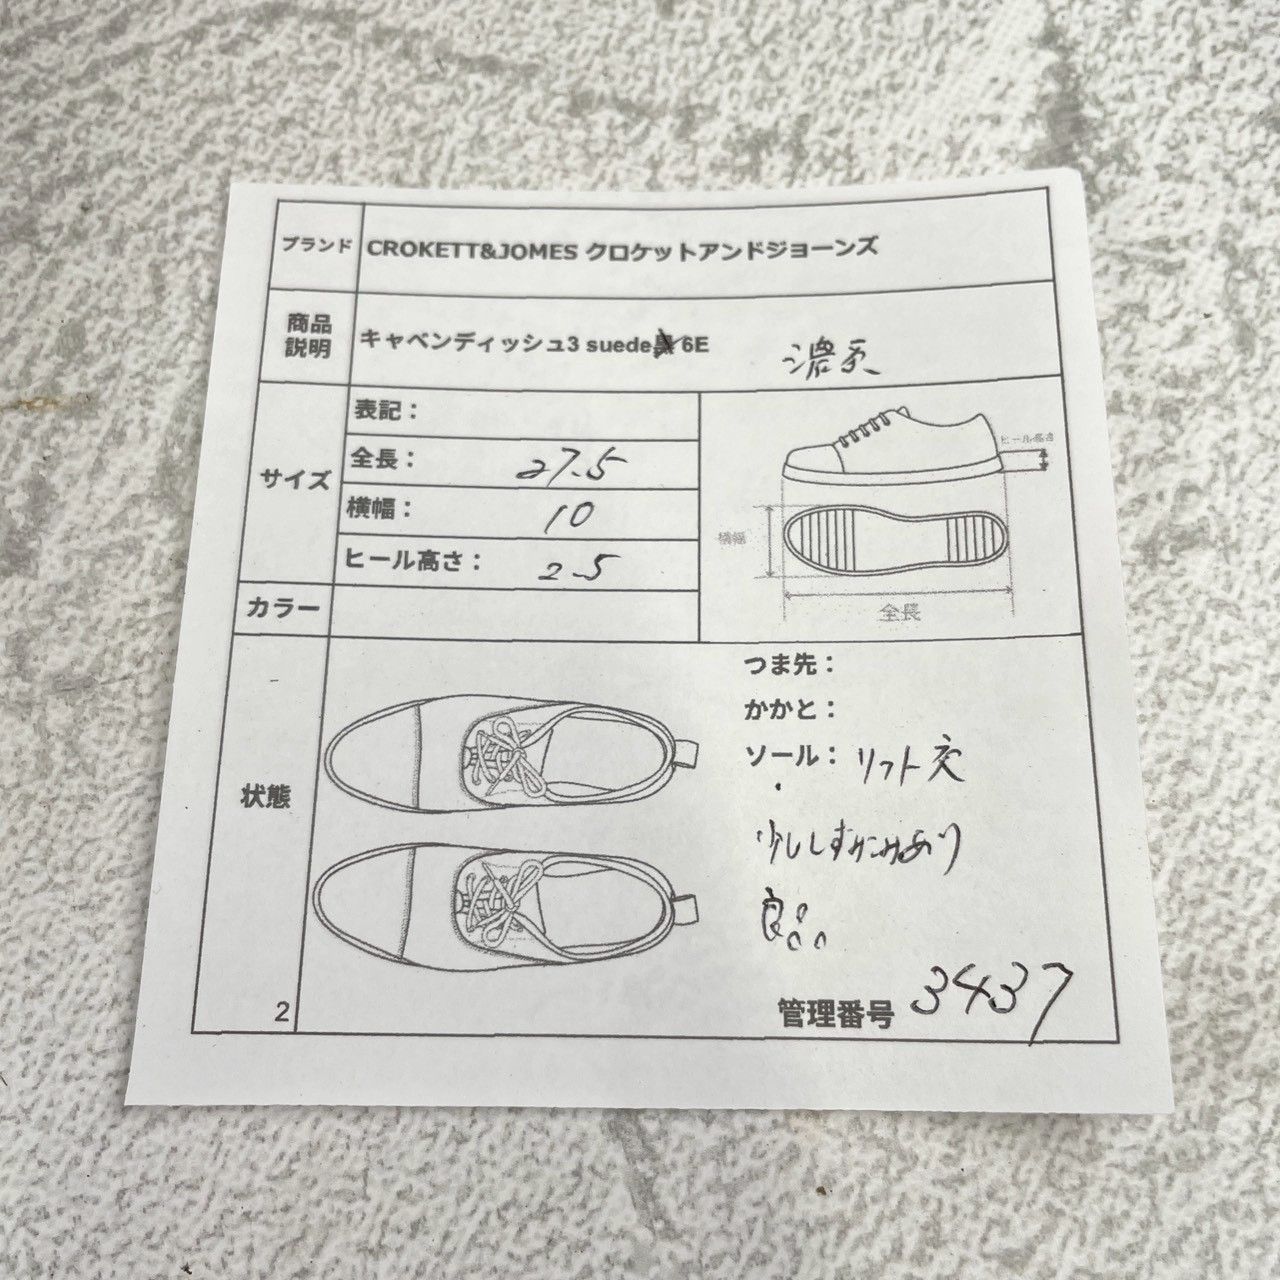 ブランド
CROKETT&JOMES クロケットアンドジョーンズ
商品
説明
キャベンディッシュ3 suede 6E
濃
サイズ
表記：
全長： 27.5
横幅： 10
ヒール高さ： 2.5
ヒール高さ
横幅
全長
カラー
状態
つま先：
かかと：
ソール： リフト交
少ししずみこみあり
良品
管理番号 3437
2